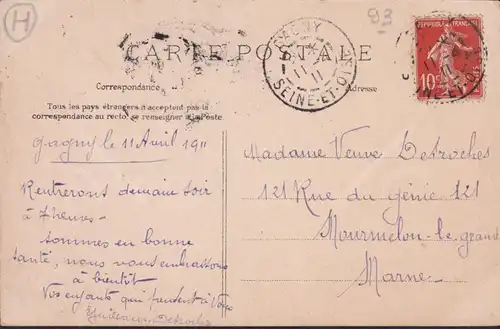 H
93
CARTE POSTALE
GAGNY
11
SEINE-ET-OISE
REPUBLIQUE FRANÇAISE
10
Correspondance
Adresse
Tous les pays étrangers n'acceptent pas la
correspondance au recto, se renseigner à la Poste.
Gagny le 11 Avril 1911
Rentreront demain soir
à 7 heures -
sommes en bonne
santé, nous vous embrassons
à bientôt
Vos enfants qui pensent à vous
Desroches
Madame Veuve Desroches
121 Rue du génie 121
Mourmelon-le-grand
Marne